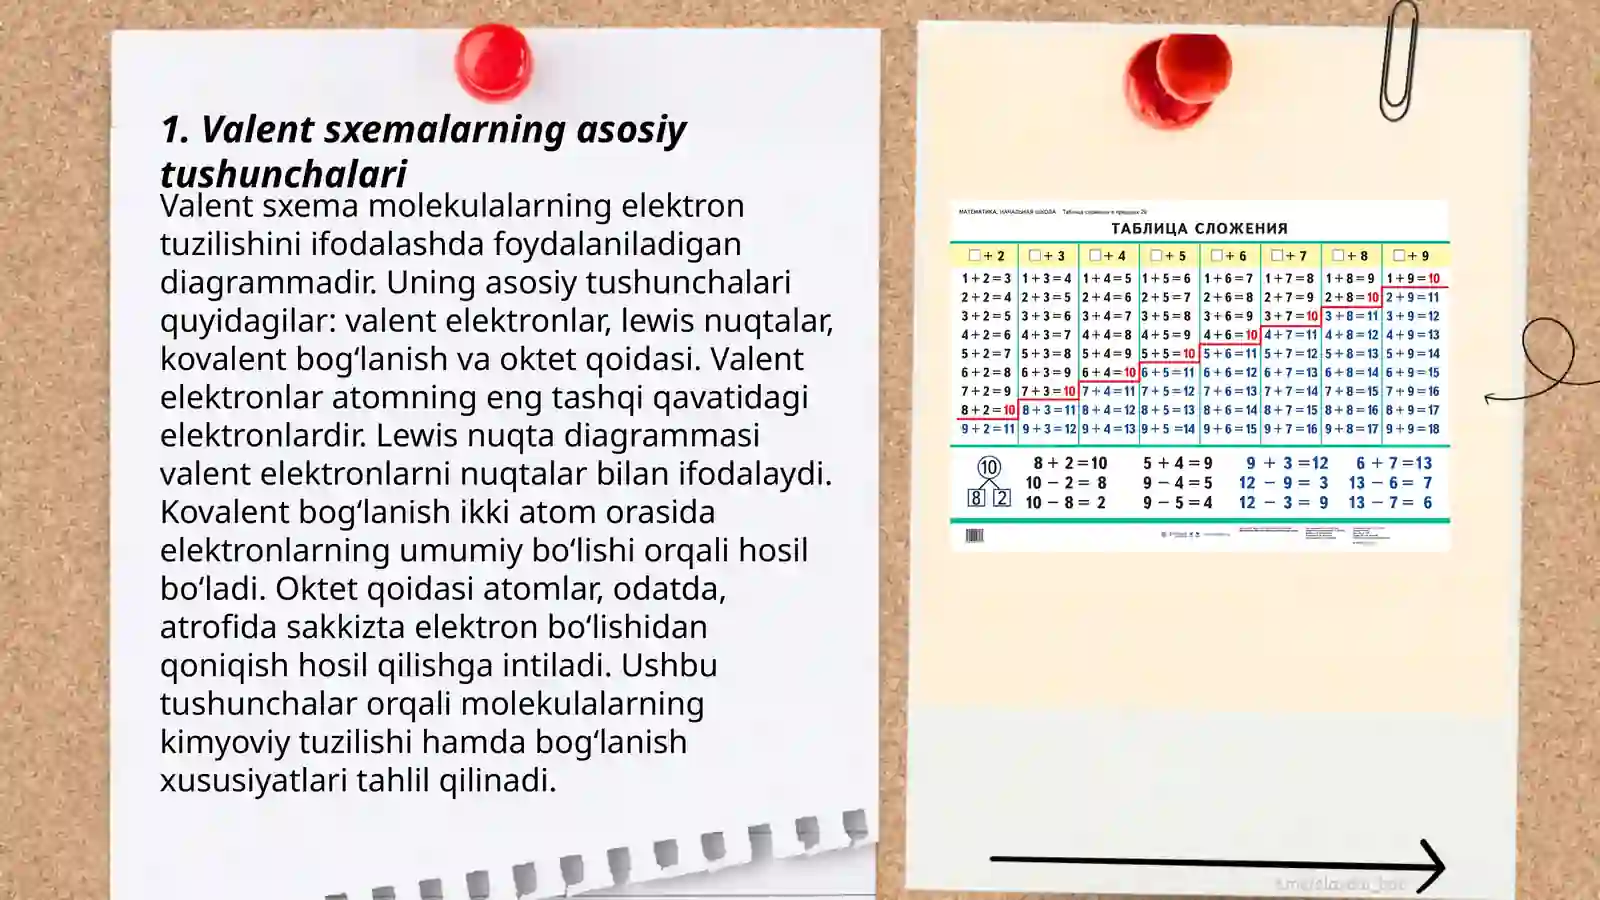 1. Valent sxemalarning asosiy
tushunchalari
Valent sxema molekulalarning elektron
tuzilishini ifodalashda foydalaniladigan
diagrammadir. Uning asosiy tushunchalari
quyidagilar: valent elektronlar, lewis nuqtalar,
kovalent bog‘lanish va oktet qoidasi. Valent
elektronlar atomning eng tashqi qavatidagi
elektronlardir. Lewis nuqta diagrammasi
valent elektronlarni nuqtalar bilan ifodalaydi.
Kovalent bog‘lanish ikki atom orasida
elektronlarning umumiy bo‘lishi orqali hosil
bo‘ladi. Oktet qoidasi atomlar, odatda,
atrofida sakkizta elektron bo‘lishidan
qoniqish hosil qilishga intiladi. Ushbu
tushunchalar orqali molekulalarning
kimyoviy tuzilishi hamda bog‘lanish
xususiyatlari tahlil qilinadi.
МАТЕМАТИКА. НАЧАЛЬНАЯ ШКОЛА Таблица сложения в пределах 20
ТАБЛИЦА СЛОЖЕНИЯ
□+2 □+3 □+4 □+5 □+6 □+7 □+8 □+9
1+2=3 1+3=4 1+4=5 1+5=6 1+6=7 1+7=8 1+8=9 1+9=10
2+2=4 2+3=5 2+4=6 2+5=7 2+6=8 2+7=9 2+8=10 2+9=11
3+2=5 3+3=6 3+4=7 3+5=8 3+6=9 3+7=10 3+8=11 3+9=12
4+2=6 4+3=7 4+4=8 4+5=9 4+6=10 4+7=11 4+8=12 4+9=13
5+2=7 5+3=8 5+4=9 5+5=10 5+6=11 5+7=12 5+8=13 5+9=14
6+2=8 6+3=9 6+4=10 6+5=11 6+6=12 6+7=13 6+8=14 6+9=15
7+2=9 7+3=10 7+4=11 7+5=12 7+6=13 7+7=14 7+8=15 7+9=16
8+2=10 8+3=11 8+4=12 8+5=13 8+6=14 8+7=15 8+8=16 8+9=17
9+2=11 9+3=12 9+4=13 9+5=14 9+6=15 9+7=16 9+8=17 9+9=18
10 8+2=10 5+4=9 9+3=12 6+7=13
8 2 10−2=8 9−4=5 12−9=3 13−6=7
10−8=2 9−5=4 12−3=9 13−7=6